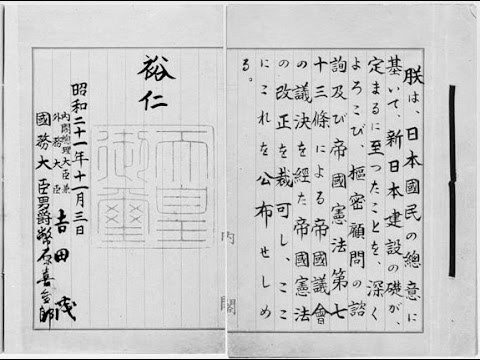 朕は、日本國民の總意に
基いて、新日本建設の礎が、
定まるに至つたことを、深く
よろこび、樞密顧問の諮
詢及び帝國憲法第七
十三條による帝國議會
の議決を経た帝國憲法
の改正を裁可し、ここ
にこれを公布せしめ
る。
裕仁
天皇
御璽
昭和二十一年十一月三日
内閣總理大臣兼
外務大臣
吉田茂
國務大臣男爵幣原喜重郎
内閣